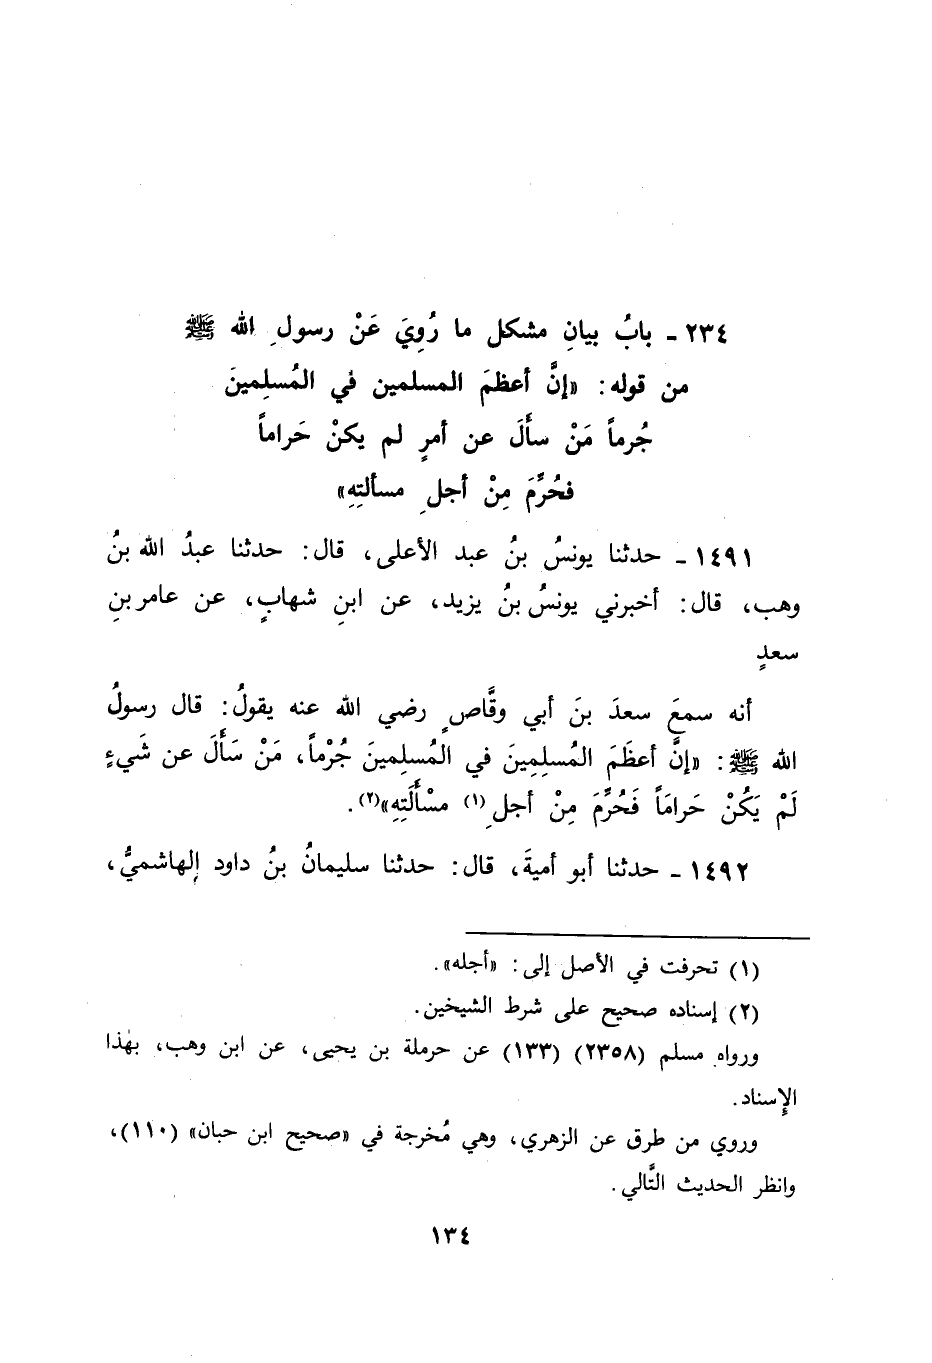 ٢٣٤ - بابُ بيانِ مشكل ما رُوِيَ عَنْ رسولِ الله ﷺ
من قوله: «إنَّ أعظمَ المسلمين في المُسلِمينَ
جُرماً مَنْ سأَلَ عن أمرٍ لم يكنْ حَراماً
فحُرِّمَ مِنْ أجلِ مسألتِهِ»
١٤٩١ - حدثنا يونسُ بنُ عبد الأعلى، قال: حدثنا عبدُ الله بنُ
وهب، قال: أخبرني يونسُ بنُ يزيد، عن ابنِ شهابٍ، عن عامر بنِ
سعدٍ
أنه سمعَ سعدَ بنَ أبي وقَّاصٍ رضي الله عنه يقولُ: قال رسولُ
الله ﷺ: «إنَّ أعظَمَ المُسلِمِينَ في المُسلِمينَ جُرْماً، مَنْ سَأَلَ عن شَيءٍ
لَمْ يَكُنْ حَراماً فَحُرِّمَ مِنْ أجلِ (١) مسْأَلَتِهِ»(٢).
١٤٩٢ - حدثنا أبو أميةَ، قال: حدثنا سليمانُ بنُ داود الهاشميُّ،
(١) تحرفت في الأصل إلى: «أجله».
(٢) إسناده صحيح على شرط الشيخين.
ورواه مسلم (٢٣٥٨) (١٣٣) عن حرملة بن يحيى، عن ابن وهب، بهٰذا
الإسناد.
وروي من طرق عن الزهري، وهي مُخرجة في «صحيح ابن حبان» (١١٠)،
وانظر الحديث التَّالي.
١٣٤